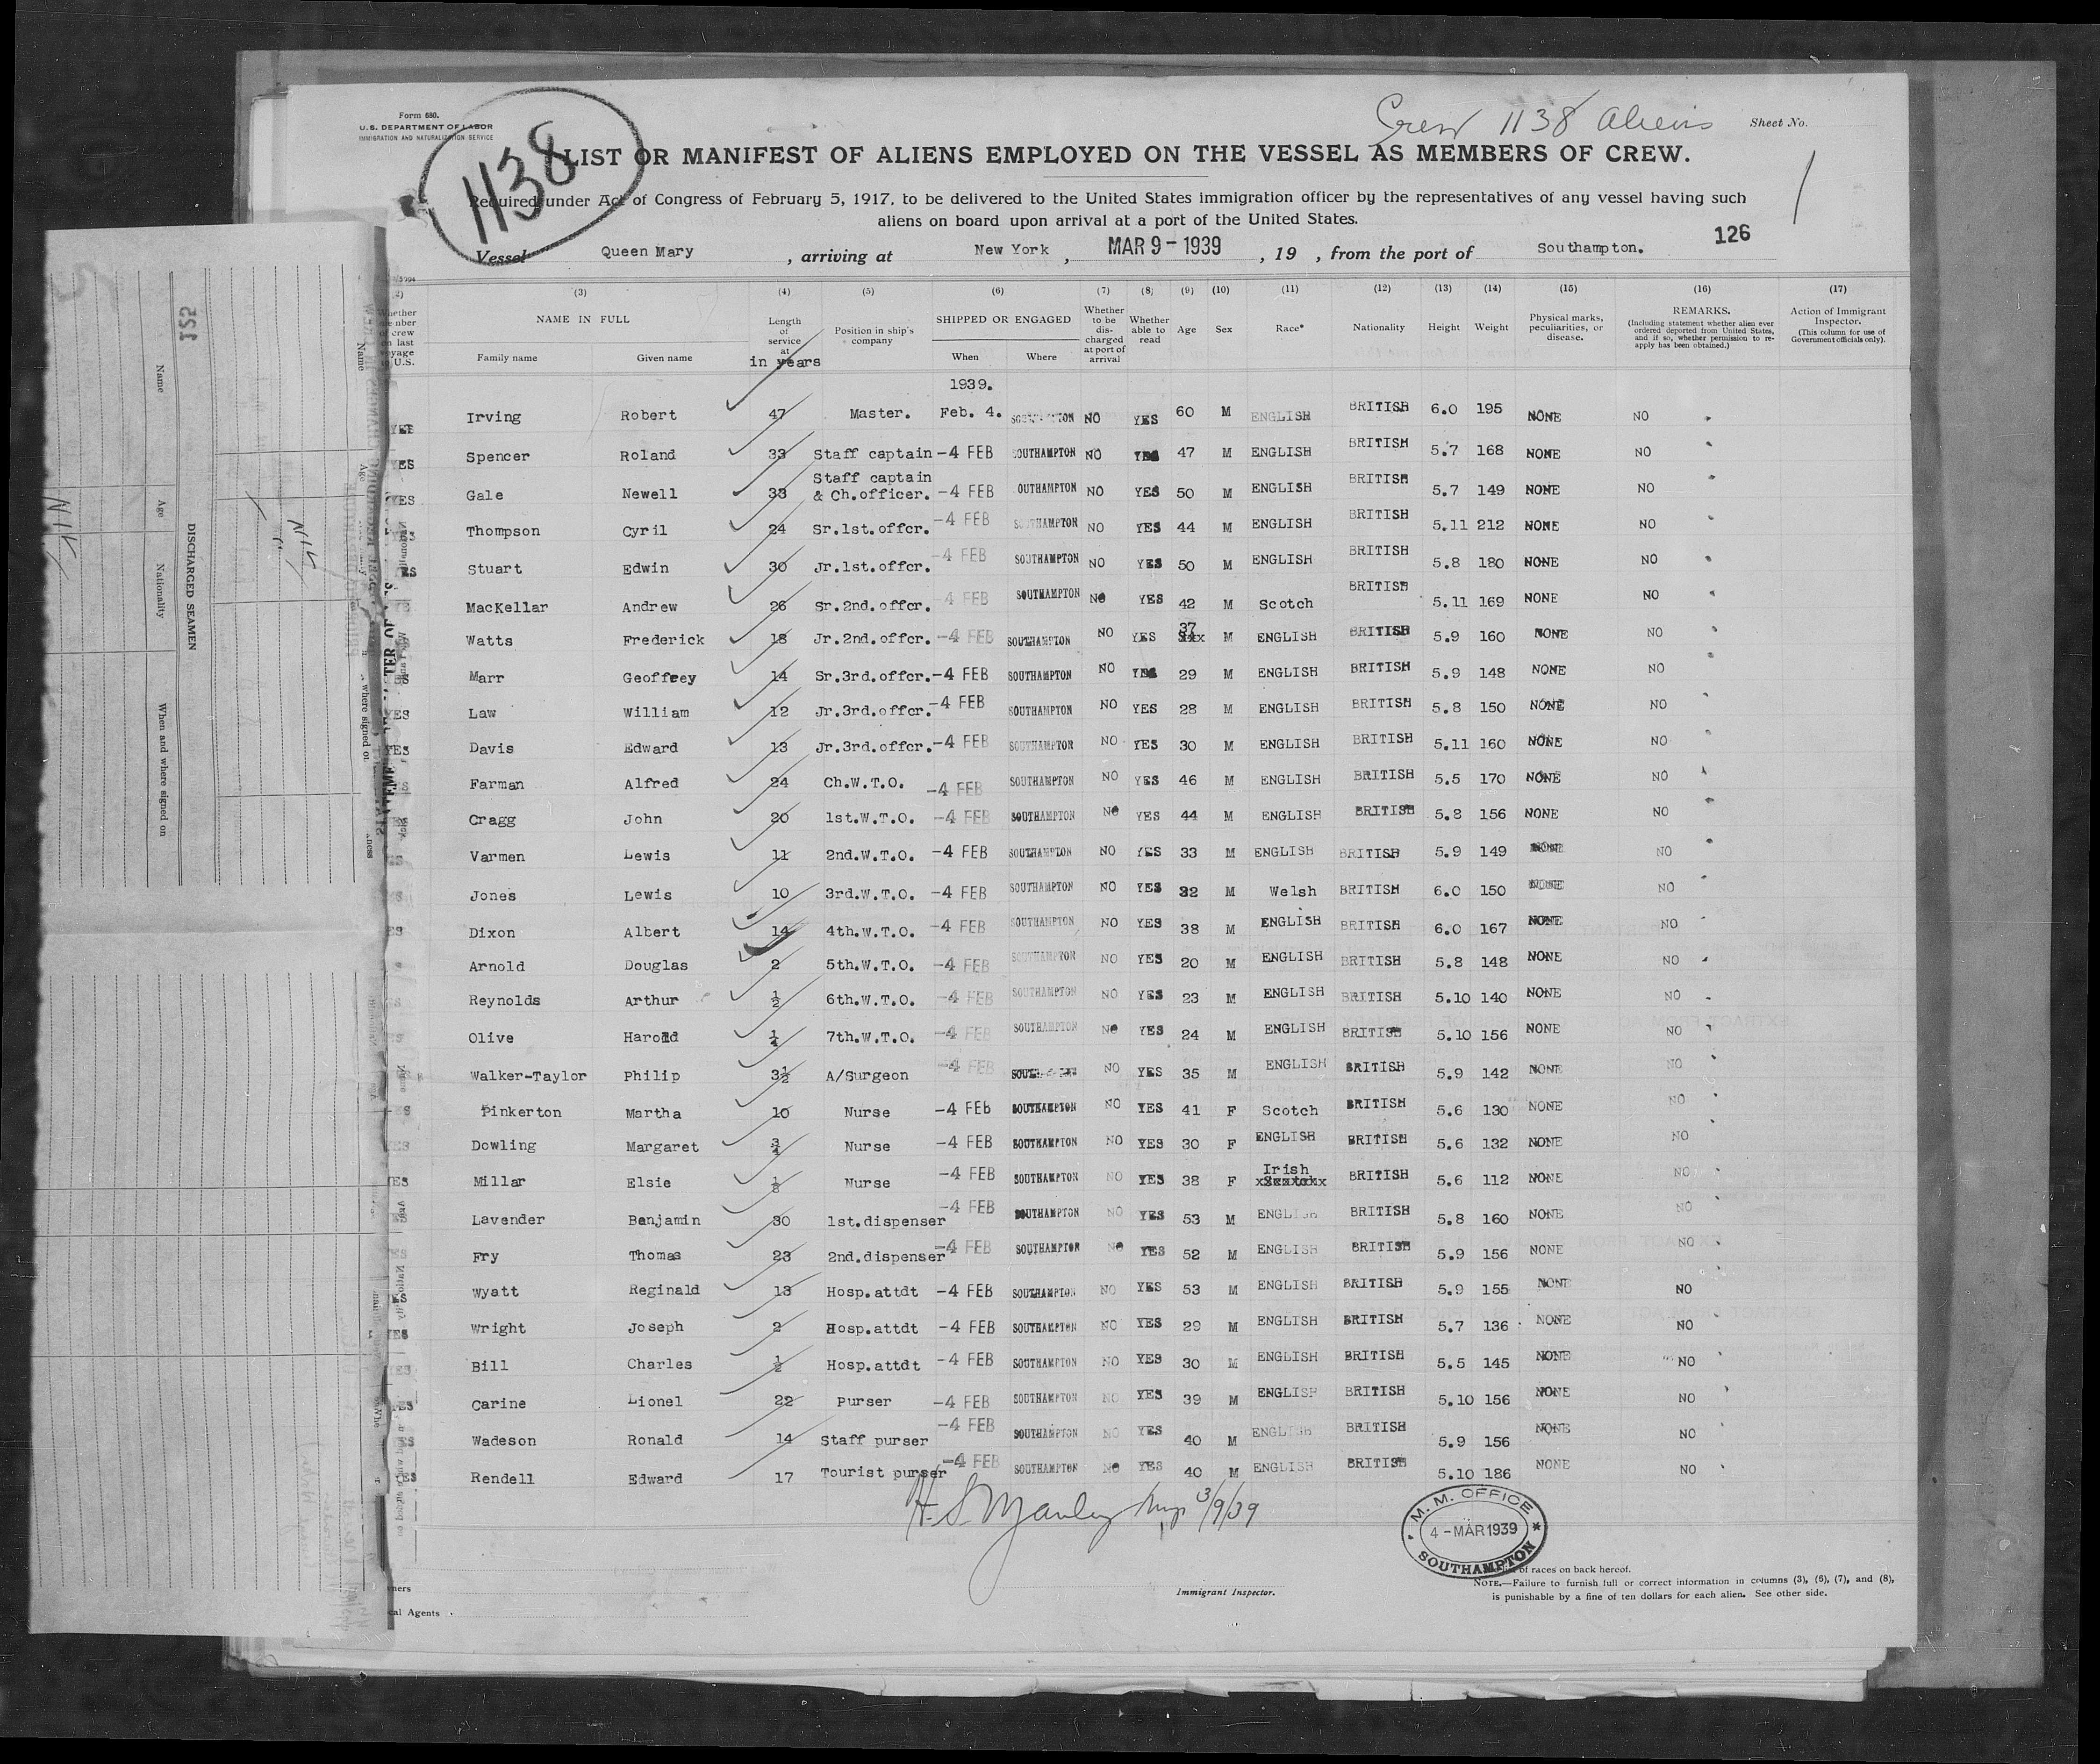 Form 680.
U.S. DEPARTMENT OF LABOR
IMMIGRATION AND NATURALIZATION SERVICE
1138
Crew 1138 Aliens
Sheet No.
1
LIST OR MANIFEST OF ALIENS EMPLOYED ON THE VESSEL AS MEMBERS OF CREW.
Required under Act of Congress of February 5, 1917, to be delivered to the United States immigration officer by the representatives of any vessel having such
aliens on board upon arrival at a port of the United States.
126
Vessel Queen Mary, arriving at New York, MAR 9 - 1939, 19 , from the port of Southampton.
(3) (4) (5) (6) (7) (8) (9) (10) (11) (12) (13) (14) (15) (16) (17)
NAME IN FULL
Family name Given name
Length of service at in years
Position in ship's company
SHIPPED OR ENGAGED
When Where
Whether to be discharged at port of arrival
Whether able to read
Age
Sex
Race*
Nationality
Height
Weight
Physical marks, peculiarities, or disease.
REMARKS.
(Including statement whether alien ever ordered deported from United States, and if so, whether permission to reapply has been obtained.)
Action of Immigrant Inspector.
(This column for use of Government officials only).
1939.
YES Irving Robert 47 Master. Feb. 4. NO YES 60 M ENGLISH BRITISH 6.0 195 NONE NO
YES Spencer Roland 33 Staff captain -4 FEB SOUTHAMPTON NO YES 47 M ENGLISH BRITISH 5.7 168 NONE NO
YES Gale Newell 33 Staff captain & Ch.officer. -4 FEB OUTHAMPTON NO YES 50 M ENGLISH BRITISH 5.7 149 NONE NO
Thompson Cyril 24 Sr.1st.offcr. -4 FEB SOUTHAMPTON NO YES 44 M ENGLISH BRITISH 5.11 212 NONE NO
Stuart Edwin 30 Jr.1st.offcr. -4 FEB SOUTHAMPTON NO YES 50 M ENGLISH BRITISH 5.8 180 NONE NO
MacKellar Andrew 26 Sr.2nd.offcr. -4 FEB SOUTHAMPTON NO YES 42 M Scotch BRITISH 5.11 169 NONE NO
Watts Frederick 18 Jr.2nd.offcr. -4 FEB SOUTHAMPTON NO YES 37 M ENGLISH BRITISH 5.9 160 NONE NO
Marr Geoffrey 14 Sr.3rd.offcr. -4 FEB SOUTHAMPTON NO YES 29 M ENGLISH BRITISH 5.9 148 NONE NO
YES Law William 12 Jr.3rd.offcr. -4 FEB SOUTHAMPTON NO YES 28 M ENGLISH BRITISH 5.8 150 NONE NO
YES Davis Edward 13 Jr.3rd.offcr. -4 FEB SOUTHAMPTON NO YES 30 M ENGLISH BRITISH 5.11 160 NONE NO
Farman Alfred 24 Ch.W.T.O. -4 FEB SOUTHAMPTON NO YES 46 M ENGLISH BRITISH 5.5 170 NONE NO
Cragg John 20 1st.W.T.O. -4 FEB SOUTHAMPTON NO YES 44 M ENGLISH BRITISH 5.8 156 NONE NO
Varmen Lewis 11 2nd.W.T.O. -4 FEB SOUTHAMPTON NO YES 33 M ENGLISH BRITISH 5.9 149 NONE NO
Jones Lewis 10 3rd.W.T.O. -4 FEB SOUTHAMPTON NO YES 32 M Welsh BRITISH 6.0 150 NONE NO
Dixon Albert 14 4th.W.T.O. -4 FEB SOUTHAMPTON NO YES 38 M ENGLISH BRITISH 6.0 167 NONE NO
Arnold Douglas 2 5th.W.T.O. -4 FEB SOUTHAMPTON NO YES 20 M ENGLISH BRITISH 5.8 148 NONE NO
Reynolds Arthur ½ 6th.W.T.O. -4 FEB SOUTHAMPTON NO YES 23 M ENGLISH BRITISH 5.10 140 NONE NO
Olive Harold ¼ 7th.W.T.O. -4 FEB SOUTHAMPTON NO YES 24 M ENGLISH BRITISH 5.10 156 NONE NO
Walker-Taylor Philip 3½ A/Surgeon -4 FEB NO YES 35 M ENGLISH BRITISH 5.9 142 NONE NO
Pinkerton Martha 10 Nurse -4 FEB SOUTHAMPTON NO YES 41 F Scotch BRITISH 5.6 130 NONE NO
Dowling Margaret ¾ Nurse -4 FEB SOUTHAMPTON NO YES 30 F ENGLISH BRITISH 5.6 132 NONE NO
YES Millar Elsie Nurse -4 FEB SOUTHAMPTON NO YES 38 F Irish BRITISH 5.6 112 NONE NO
Lavender Benjamin 30 1st.dispenser -4 FEB SOUTHAMPTON NO YES 53 M ENGLISH BRITISH 5.8 160 NONE NO
Fry Thomas 23 2nd.dispenser -4 FEB SOUTHAMPTON NO YES 52 M ENGLISH BRITISH 5.9 156 NONE NO
Wyatt Reginald 13 Hosp.attdt -4 FEB SOUTHAMPTON NO YES 53 M ENGLISH BRITISH 5.9 155 NONE NO
YES Wright Joseph 2 Hosp.attdt -4 FEB SOUTHAMPTON NO YES 29 M ENGLISH BRITISH 5.7 136 NONE NO
YES Bill Charles ½ Hosp.attdt -4 FEB SOUTHAMPTON NO YES 30 M ENGLISH BRITISH 5.5 145 NONE NO
YES Carine Lionel 22 Purser -4 FEB SOUTHAMPTON NO YES 39 M ENGLISH BRITISH 5.10 156 NONE NO
Wadeson Ronald 14 Staff purser -4 FEB SOUTHAMPTON NO YES 40 M ENGLISH BRITISH 5.9 156 NONE NO
YES Rendell Edward 17 Tourist purser -4 FEB SOUTHAMPTON NO YES 40 M ENGLISH BRITISH 5.10 186 NONE NO
H. S. Manley Insp 3/9/39
Immigrant Inspector.
M. M. OFFICE
4 - MAR 1939
SOUTHAMPTON
of races on back hereof.
NOTE.—Failure to furnish full or correct information in columns (3), (6), (7), and (8),
is punishable by a fine of ten dollars for each alien. See other side.
cal Agents
125
DISCHARGED SEAMEN
Name Age Nationality When and where signed on
NIL
NIL